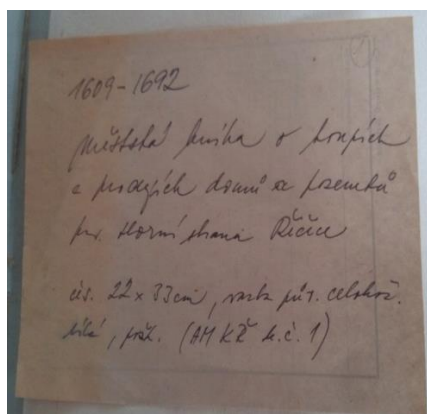 1609-1692
Městská kniha o koupích
a prodejích domů a pozemků
pro Horní strana Řečice
čes. 22 x 33 cm, vazba pův. celokož.
bílá, poš. (AM KŘ k.č. 1)